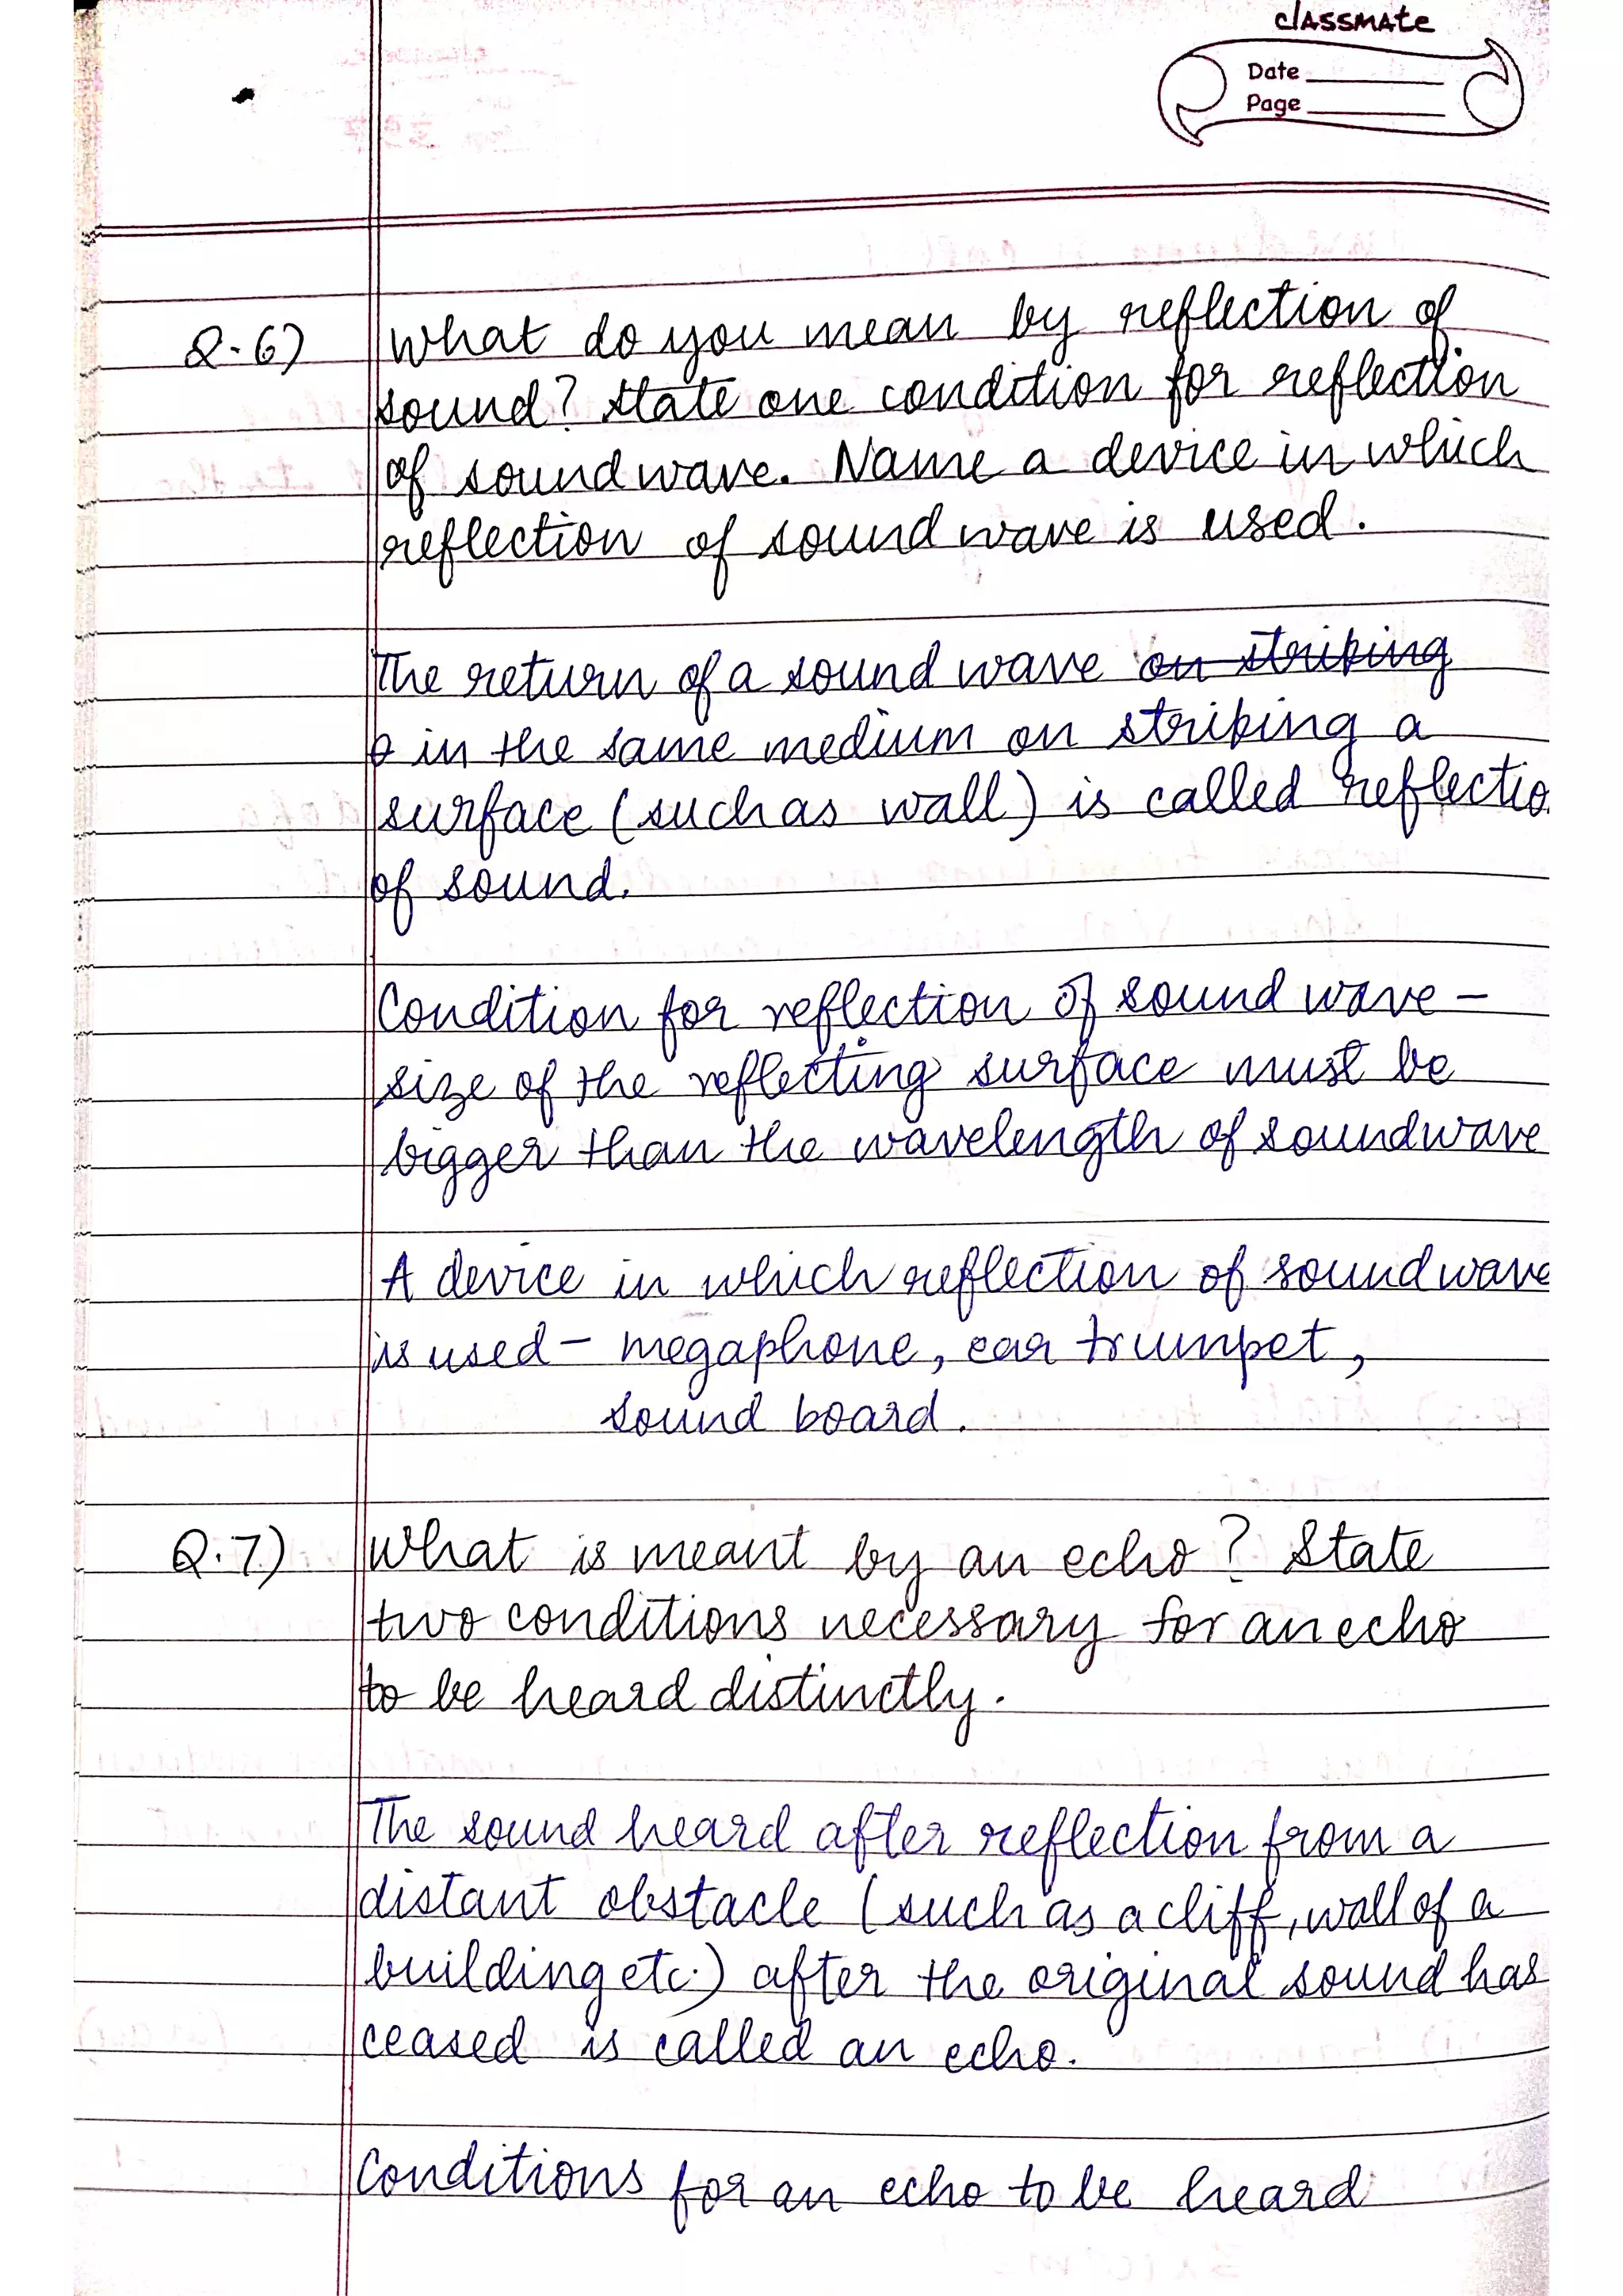 classmate
Date
Page
Q.6) What do you mean by reflection of
sound? State one condition for reflection
of sound wave. Name a device in which
reflection of sound wave is used.
The return of a sound wave on striking
in the same medium on striking a
surface (such as wall) is called reflectio
of sound.
Condition for reflection of sound wave -
size of the reflecting surface must be
bigger than the wavelength of sound wave
A device in which reflection of sound wave
is used - megaphone, ear trumpet,
sound board.
Q.7) What is meant by an echo? State
two conditions necessary for an echo
to be heard distinctly.
The sound heard after reflection from a
distant obstacle (such as a cliff, wall of a
building etc.) after the original sound has
ceased is called an echo.
Conditions for an echo to be heard